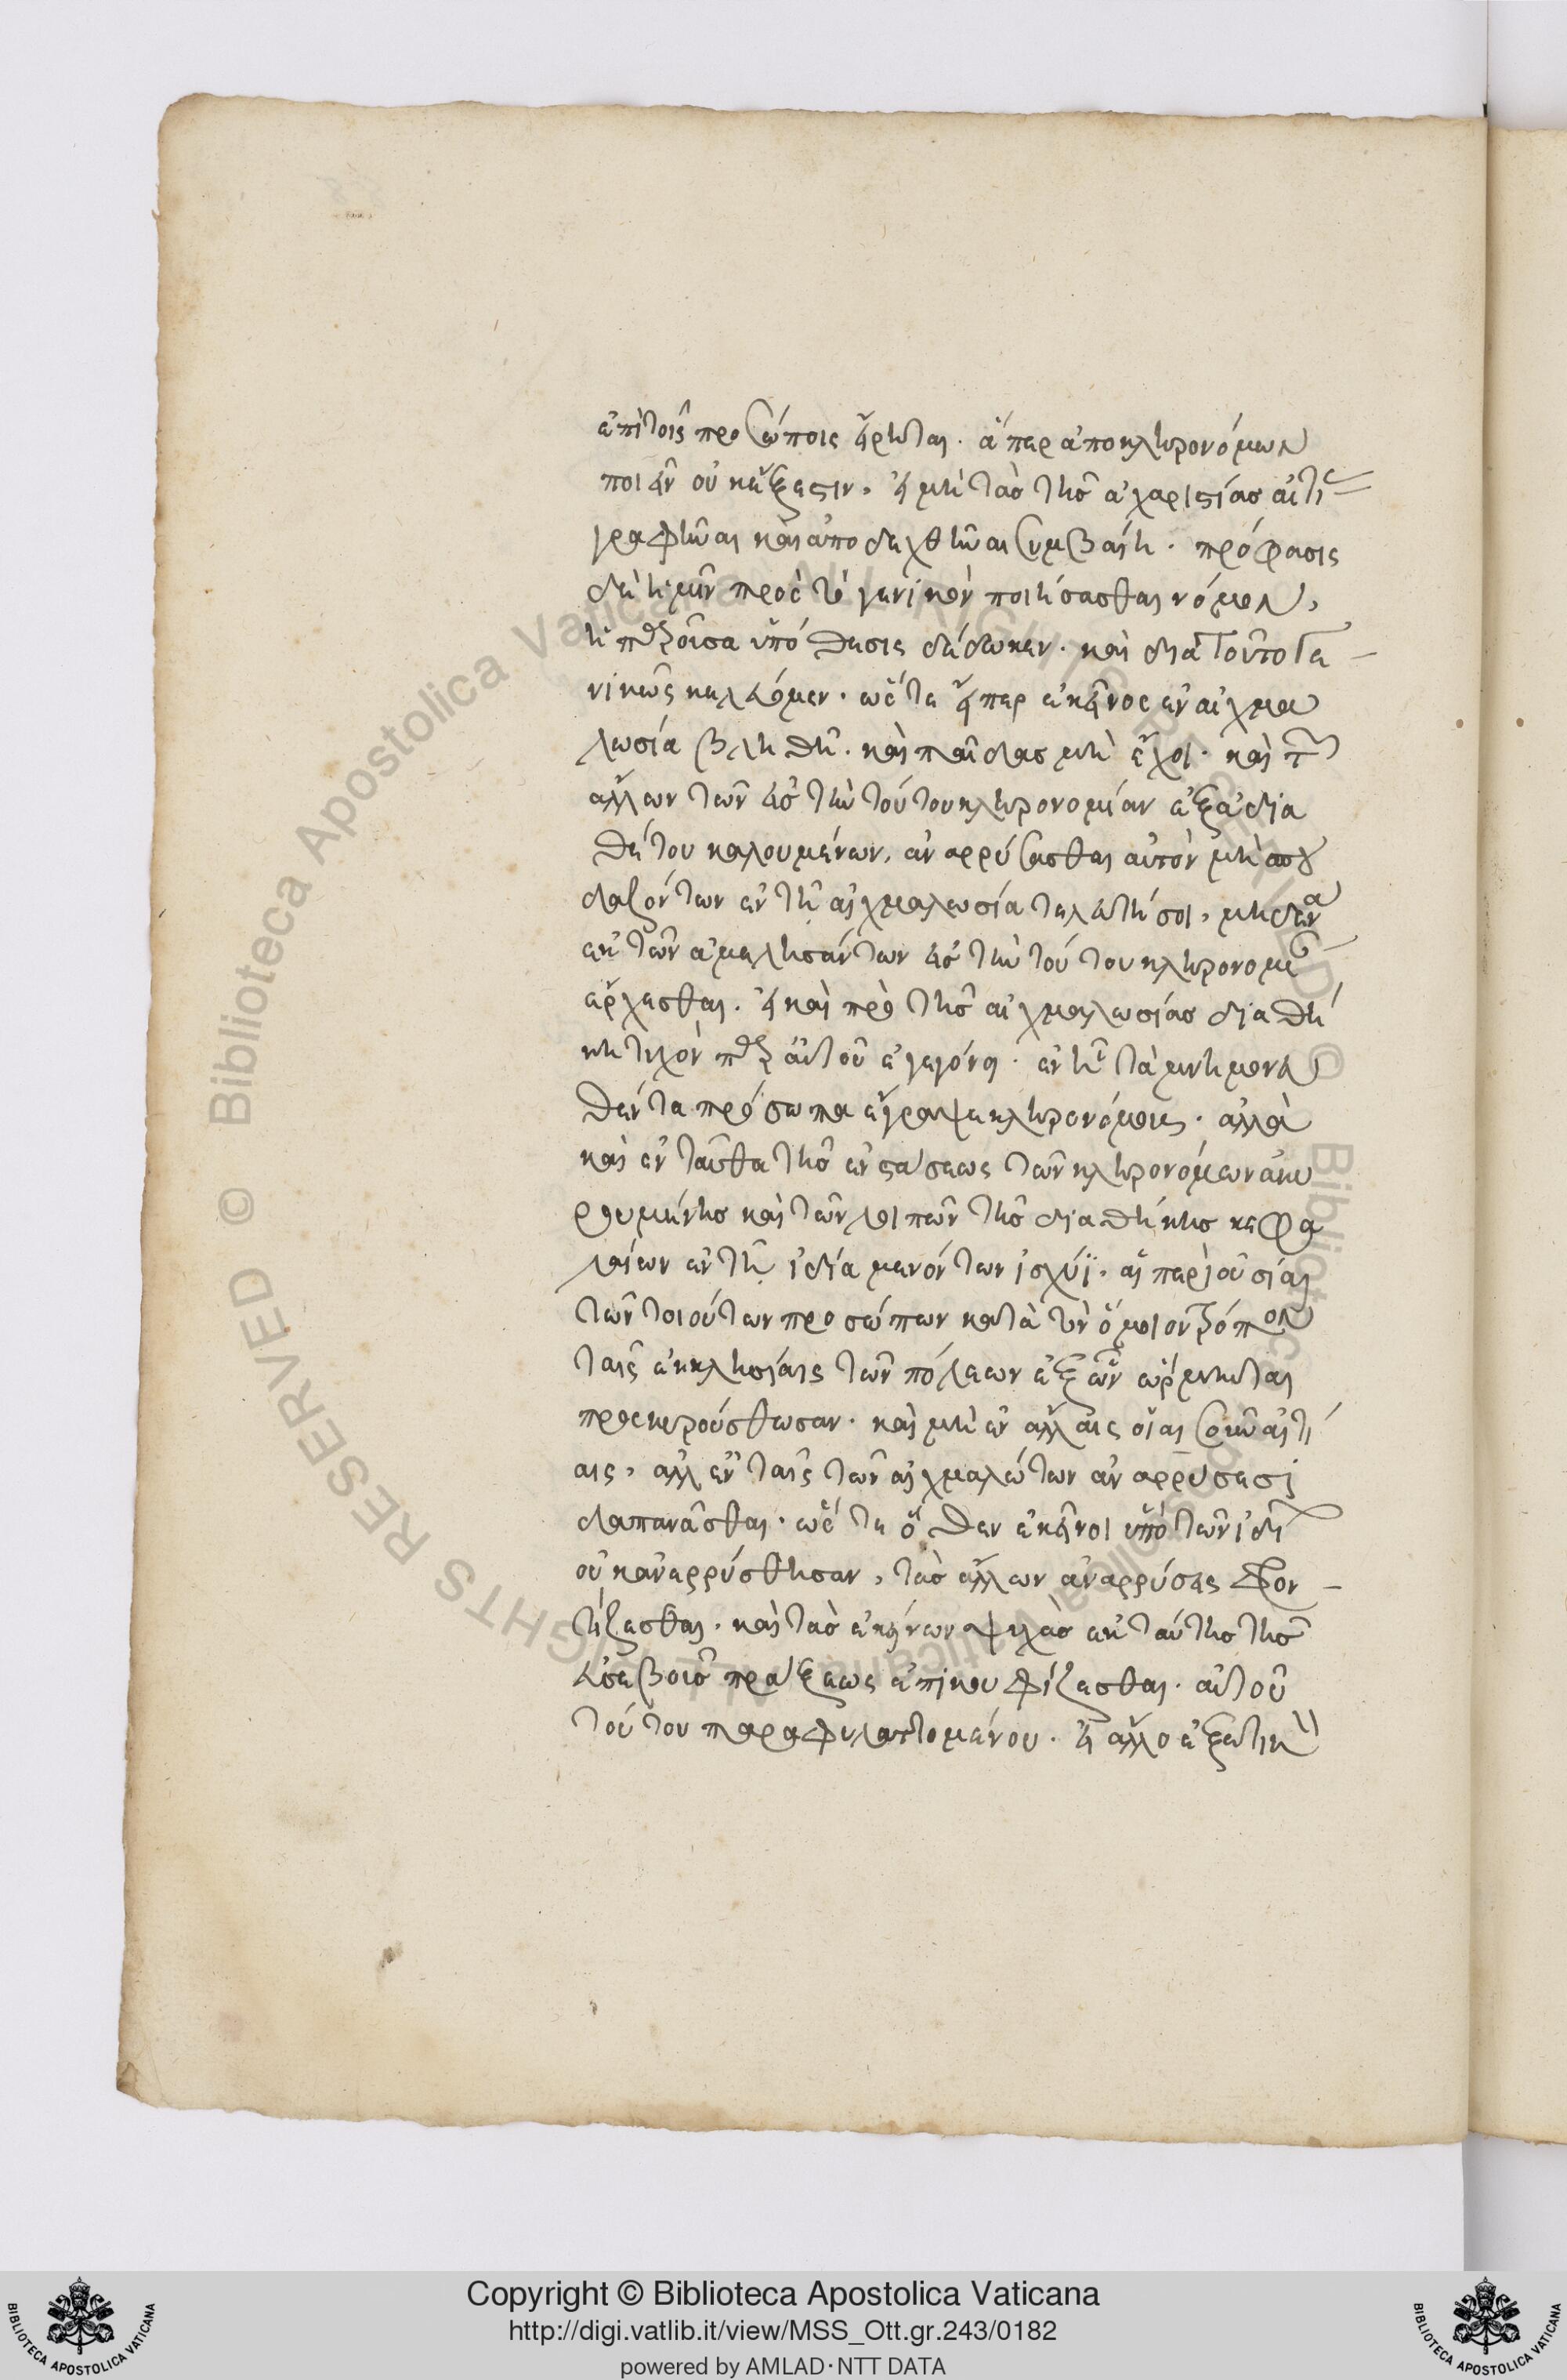 ἐπὶ τοῖς προσώποις εἴρηται. ἅπερ ἀποκληρονόμων
ποιεῖν οὐκ ἔξεστιν, εἰ μὴ τὰς τῆς ἀχαριστίας αἰτί
γραφῆναι καὶ ἀποδειχθῆναι συμβαίη. πρόφασις
δὲ ἡμῖν πρὸς τὸ γενικὸν ποιήσασθαι νόμον,
ἡ παροῦσα ὑπόθεσις δέδωκεν. καὶ διὰ τοῦτο γε
νικῶς κελεύομεν. ὥστε εἴπερ ἐκεῖνος ἐν αἰχμα
λωσία βληθῆ. καὶ παῖδας μὴ ἔχοι. καὶ τῶν
ἄλλων τῶν εἰς τὴν τούτου κληρονομίαν ἐξ ἀδια
θέτου καλουμένων, ἀναρρύσασθαι αὐτὸν μὴ σπου
δαζόντων ἐν τῆ αἰχμαλωσία τελευτήσοι, μηδένα
ἐκ τῶν ἀμελησάντων εἰς τὴν τούτου κληρονομί
ἔρχεσθαι. εἰ καὶ πρὸ τῆς αἰχμαλωσίας διαθή
κη τυχὸν παρ αὐτοῦ ἐγεγόνει. ἐν ἧ τὰ μνημονευ
θέντα πρόσωπα ἔγραψε κληρονόμους. ἀλλὰ
καὶ ἐνταῦθα τῆς ἐνστάσεως τῶν κληρονόμων ἀκυ
ρουμένης καὶ τῶν λοιπῶν τῆς διαθήκης κεφα
λαίων ἐν τῆ ἰδία μενόντων ἰσχύϊ, αἱ περιουσίαι
τῶν τοιούτων προσώπων κατὰ τὸν ὅμοιον τρόπον
ταῖς ἐκκλησίαις τῶν πόλεων ἐξ ὧν ὥρμηνται
προσκυρούσθωσαν. καὶ μὴ ἐν ἄλλαις οἵαις οὖν αἰτί
αις, ἀλλ ἐν ταῖς τῶν αἰχμαλώτων ἀναρρύσεσι
δαπανᾶσθαι. ὥστε ὅθεν ἐκεῖνοι ὑπὸ τῶν ἰδί
οὐκ ἀνερρύσθησαν, τὰς ἄλλων ἀναρρύσεις φρον
τίζεσθαι. καὶ τὰς ἐκείνων ψυχὰς ἐκ ταύτης τῆς
εὐσεβοῦς πράξεως ἐπικουφίζεσθαι. αὐτοῦ
τούτου παραφυλαττομένου. εἰ ἄλλο ἐξωτικὸν
Copyright © Biblioteca Apostolica Vaticana
http://digi.vatlib.it/view/MSS_Ott.gr.243/0182
powered by AMLAD·NTT DATA
BIBLIOTECA APOSTOLICA VATICANA
BIBLIOTECA APOSTOLICA VATICANA